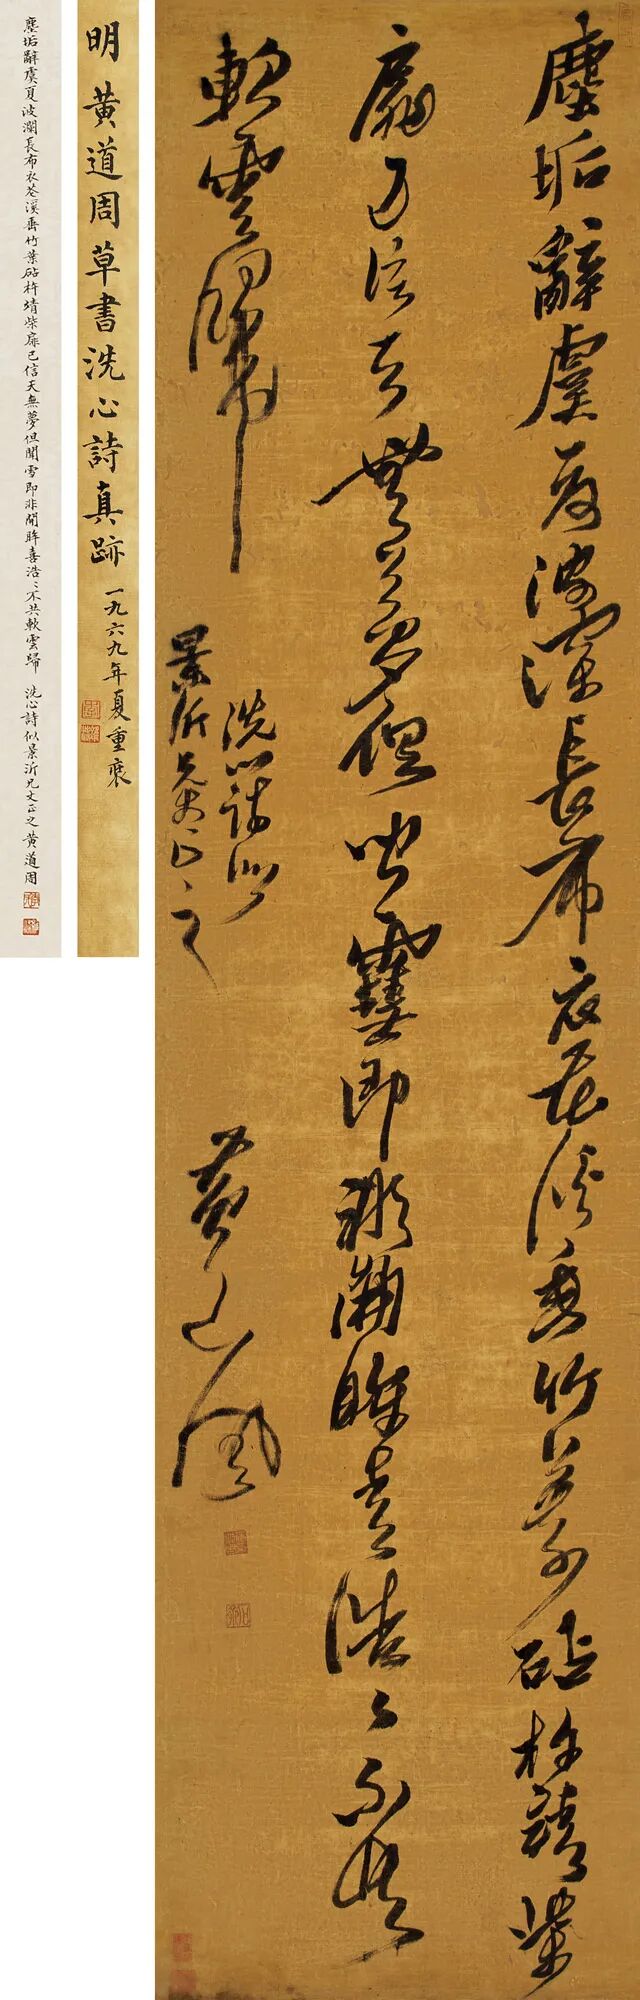 塵垢辭虞夏波瀾長布衣花溪垂竹葉砧杵靖柴
扉已信天無夢但聞雪即非開眸喜浩〻不共
軟雲歸
洗心詩似
景沂兄丈正之
黃道周
明 黃道周草書洗心詩真跡 一九六九年夏重
塵垢辭虞夏波瀾長布衣花溪垂竹葉砧杵靖柴扉已信天無夢但聞雪即非開眸喜浩〻不共軟雲歸 洗心詩似景沂兄丈正之黃道周